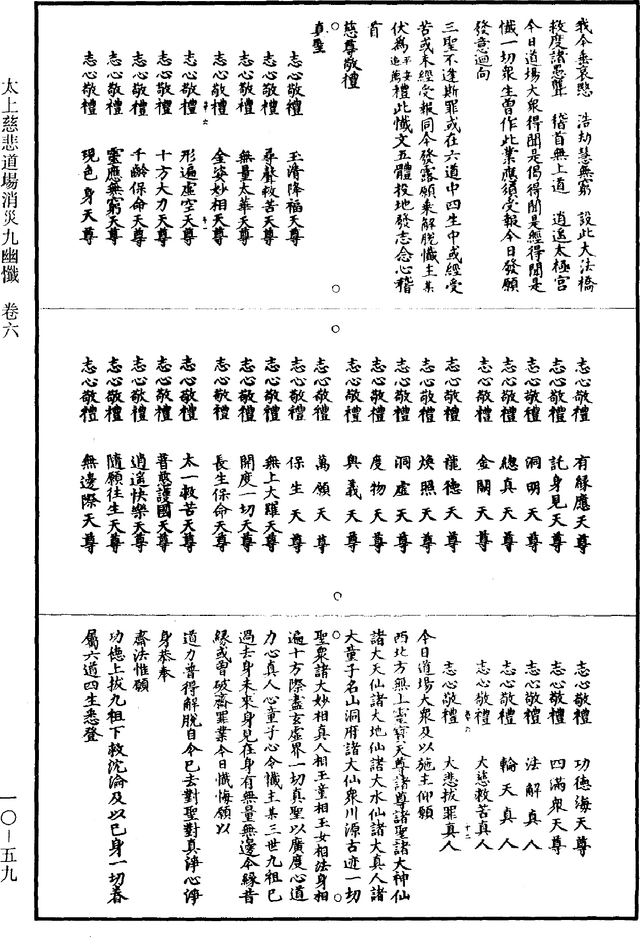 我今垂哀愍　浩劫慧無窮　設此大法橋
救度諸愚聾　稽首無上道　逍遙太極宮
今日道場大衆得聞是偈得聞是經得聞是
懺一切衆生曾作此業應須受報今日發願
發意迴向
三聖不逢斯罪或在六道中四生中或經受
苦或未經受報同今發露願乘解脫懺主某
伏爲平安追薦禮此懺文五體投地發志念心稽
首
慈尊敬禮
真聖
志心敬禮　玉清降福天尊
志心敬禮　尋聲救苦天尊
志心敬禮　無量太華天尊
志心敬禮　金姿妙相天尊
志心敬禮　形遍虛空天尊
志心敬禮　十方大力天尊
志心敬禮　千齡保命天尊
志心敬禮　靈應無窮天尊
志心敬禮　現色身天尊
志心敬禮　有緣應天尊
志心敬禮　託身見天尊
志心敬禮　洞明天尊
志心敬禮　總真天尊
志心敬禮　金關天尊
志心敬禮　龍德天尊
志心敬禮　煥照天尊
志心敬禮　洞虛天尊
志心敬禮　度物天尊
志心敬禮　與義天尊
志心敬禮　萬願天尊
志心敬禮　保生天尊
志心敬禮　無上大羅天尊
志心敬禮　開度一切天尊
志心敬禮　長生保命天尊
志心敬禮　太一救苦天尊
志心敬禮　普慈護國天尊
志心敬禮　逍遙快樂天尊
志心敬禮　隨願往生天尊
志心敬禮　無邊際天尊
志心敬禮　功德海天尊
志心敬禮　四滿衆天尊
志心敬禮　法解真人
志心敬禮　輪天真人
志心敬禮　大慈救苦真人
志心敬禮　大悲拔罪真人
今日道場大衆及以施主仰願
西北方無上靈寶天尊諸尊諸聖諸大神仙
諸大天仙諸大地仙諸大水仙諸大真人諸
大童子名山洞府諸大仙衆川源古迹一切
聖衆諸大妙相真人相玉童相玉女相法身相
遍十方際盡玄虛界一切真聖以廣度心道
力心真人心童子心令懺主某三世九祖已
過去身未來身見在身有無量無邊今緣昔
緣或曾破齋罪業今日懺悔願以
道力普得解脫自今已去對聖對真淨心淨
身恭奉
齋法惟願
功德上拔九祖下救沈淪及以己身一切眷
屬六道四生悉登
太上慈悲道場消災九幽懺　卷六
一〇—五九